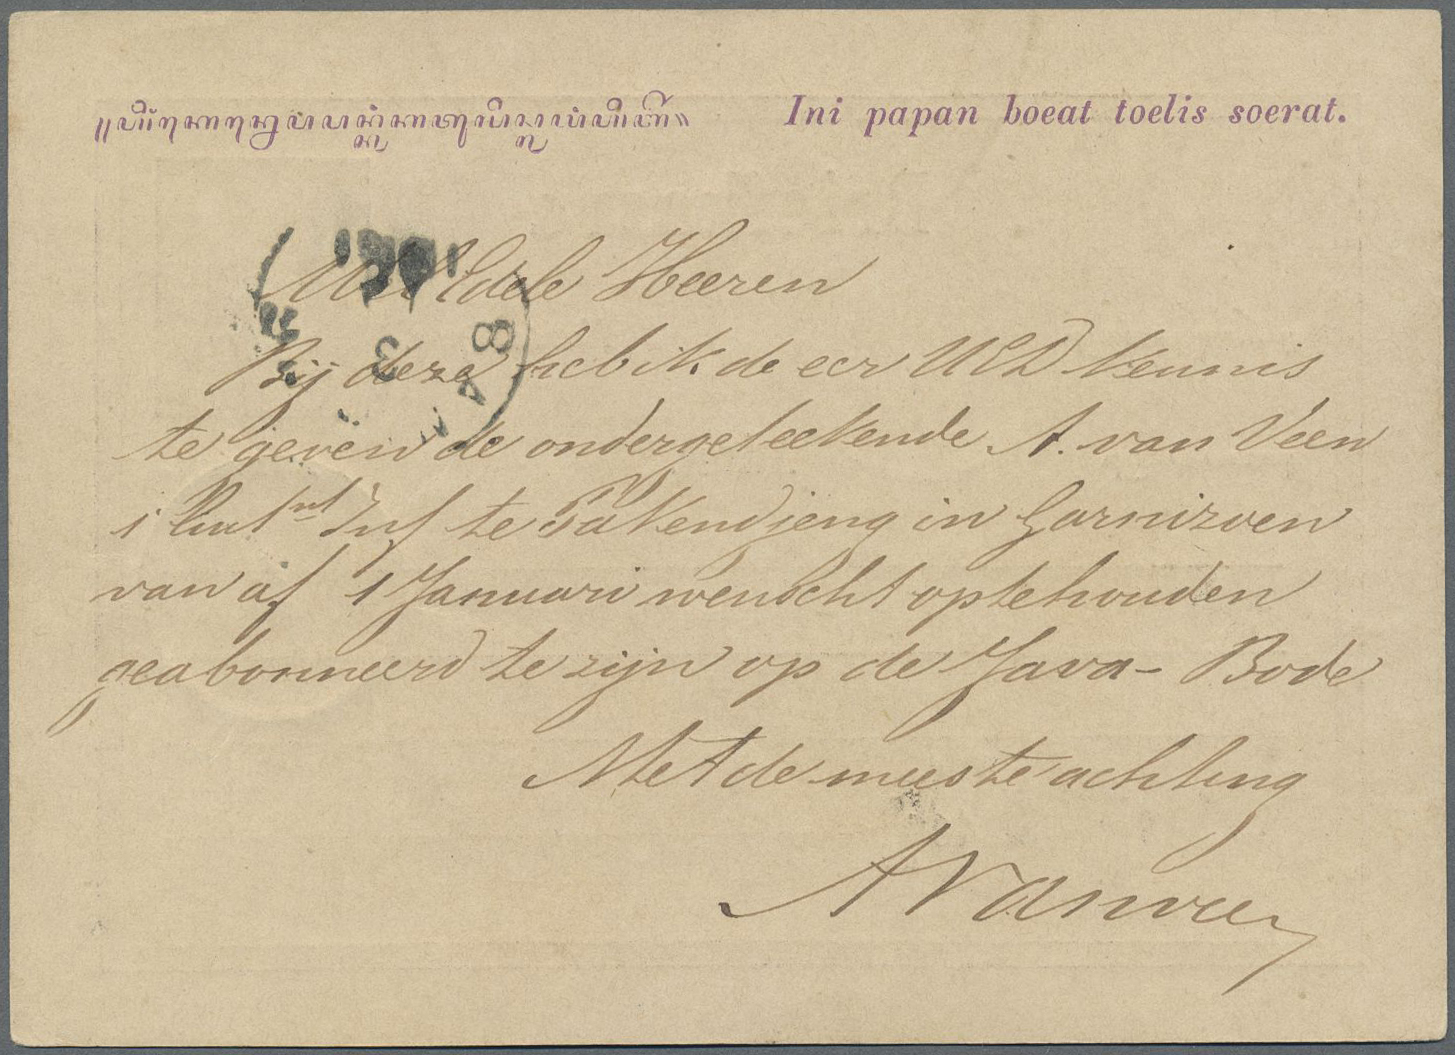 Ini papan boeat toelis soerat.
Edele Heeren
Bij deze heb ik de eer UED kennis
te geven de ondergeteekende A. van Veen
1 Luitnt Inf te Pakendjeng in Garnizoen
van af 1 Januari wenscht optehouden
geabonneerd te zijn op de Java-Bode
Met de meeste achting
AvanVeen